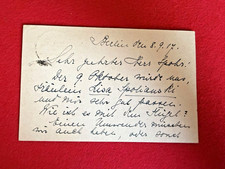 Berlin den 8. 9. 17.
Sehr geehrter Herr Spohr:
Der 9. Oktober wird uns,
Fräulein Lisa Spolianski
und mir sehr gut passen.
Wie ist es mit dem
Einen müssten
wir auch haben, oder sonst